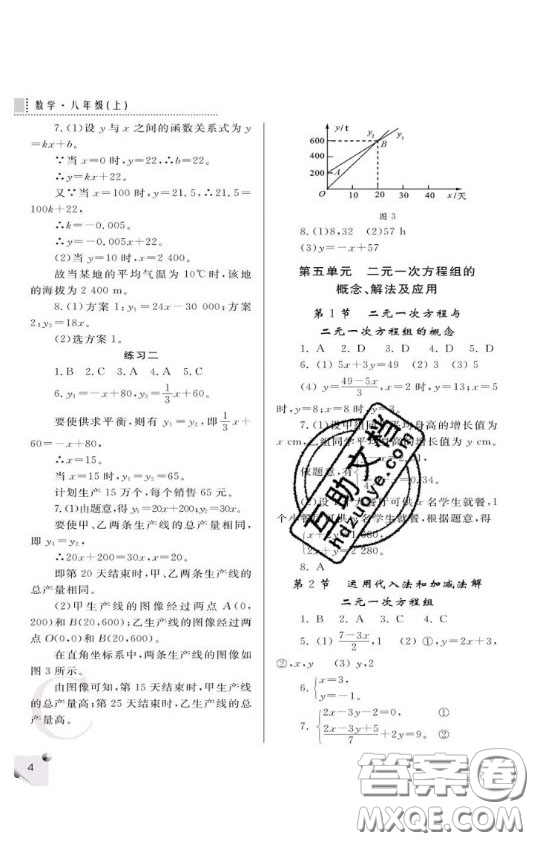 数学·八年级(上)
7.(1)设 y 与 x 之间的函数关系式为 y
=kx+b.
∵当 x=0 时,y=22,∴b=22.
又∵当 x=100 时,y=21.5,∴21.5=
100k+22,
∴k=-0.005.
∴y=-0.005x+22.
(2)当 y=10 时,x=2 400.
故当某地的平均气温为 10℃时,该地
的海拔为 2 400 m.
8.(1)方案 1:y₁=24x-30 000;方案
2:y₂=18x.
(2)选方案 1.
练习二
1. B 2. C 3. A 4. A 5. C
6. y₁=-x+80,y₂=1/3x+60.
要使供求平衡,则有 y₁=y₂,即1/3x+
60=-x+80,
∴x=15.
当 x=15 时,y=65.
计划生产 15 万个,每个销售 65 元.
7.(1)由题意,得 y₁=20x+200,y₂=30x.
要使甲、乙两条生产线的总产量相同,
即 y₁=y₂,
∴20x+200=30x,
∴x=20.
即第 20 天结束时,甲、乙两条生产线的
总产量相同.
(2)甲生产线的图像经过两点 A(0,
200)和 B(20,600);乙生产线的图像经过两
点 O(0,0)和 B(20,600).
在直角坐标系中,两条生产线的图像如
图 3 所示.
由图像可知,第 15 天结束时,甲生产线
的总产量高;第 25 天结束时,乙生产线的总
产量高.
4
y/t
y₂
y₁
B
600
400
200
A
0 10 20 30 40 x/天
图 3
8.(1)8,32 (2)57 h
(3)y=-x+57
第五单元 二元一次方程组的
概念、解法及应用
第 1 节 二元一次方程与
二元一次方程组的概念
1. A 2. D 3. D 4. D 5. D
6.(1)5x+3y=49 (2)3 (3)5
(4)y=(49-5x)/3,x=2 时,y=13;x=5
时,y=8;x=8 时,y=3.
7.(1)设甲组同学平均身高的增长值为
x cm,乙组同学平均身高的增长值为 y cm.
依题意,得
=0.34.
x 名学生就餐,1
名学生就餐.根据题意,得
=2 280.
8. A
第 2 节 运用代入法和加减法解
二元一次方程组
1. B 2. A 3. C 4. A
5.(1)(7-3x)/2,1 (2)①,y=2x-3,
②,x,y (3)y,2
6. {x=3,
y=-1.
7. {2x-3y-2=0, ①
(2x-3y+5)/7+2y=9. ②
互助文档
hdzuoye.com
答案卷
MXQE.COM